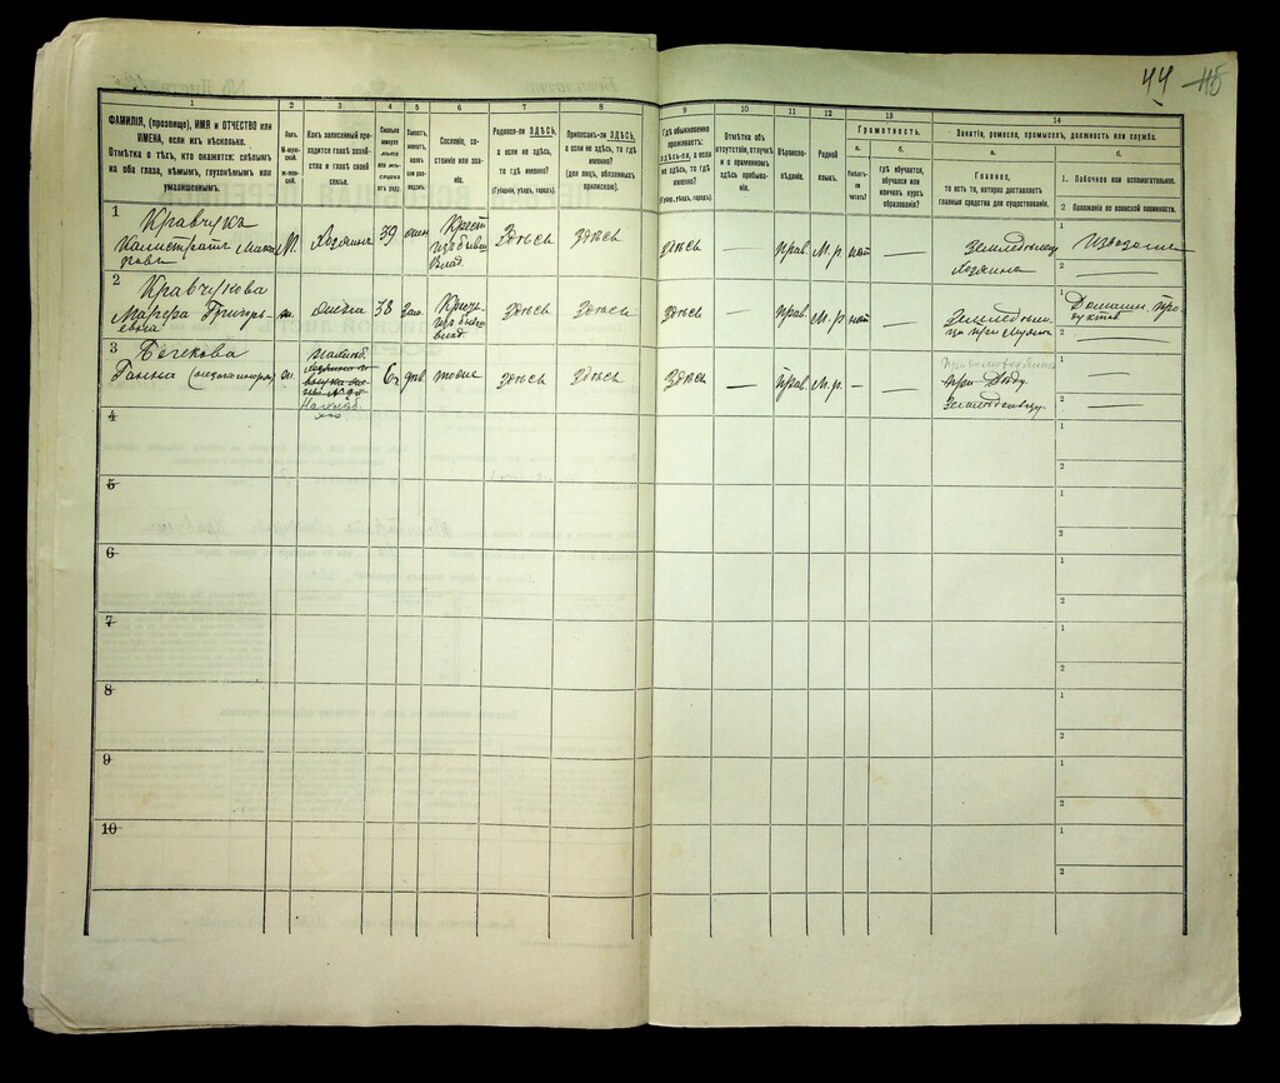 44 45
1
ФАМИЛІЯ, (прозвище), ИМЯ и ОТЧЕСТВО или
ИМЕНА, если ихъ нѣсколько.
Отмѣтка о тѣхъ, кто окажется: слѣпымъ
на оба глаза, нѣмымъ, глухонѣмымъ или
умалишеннымъ.
2
Полъ.
М-муж-
ской.
ж-жен-
скій.
3
Какъ записанный при-
ходится главѣ хозяй-
ства и главѣ своей
семьи.
4
Сколько
минуло
лѣтъ
или мѣ-
сяцевъ
отъ роду.
5
Холостъ,
женатъ,
вдовъ
или раз-
веденъ.
6
Сословіе, со-
стояніе или зва-
ніе.
7
Родился-ли ЗДѢСЬ,
а если не здѣсь,
то гдѣ именно?
(Губернія, уѣздъ, городъ).
8
Приписанъ-ли ЗДѢСЬ,
а если не здѣсь, то гдѣ
именно?
(для лицъ, обязанныхъ
припискою).
9
Гдѣ обыкновенно
проживаетъ:
ЗДѢСЬ-ли, а если
не здѣсь, то гдѣ
именно?
(Губер., уѣздъ, городъ).
10
Отмѣтка объ
отсутствіи, отлучкѣ
и о временномъ
здѣсь пребыва-
ніи.
11
Вѣроиспо-
вѣданіе.
12
Родной
языкъ.
13
Грамотность.
а.
Умѣетъ-
ли
читать?
б.
гдѣ обучается,
обучался или
кончилъ курсъ
образованія?
14
Занятіе, ремесло, промыселъ, должность или служба.
а.
Главное,
то есть то, которое доставляетъ
главныя средства для существованія.
б.
1. Побочное или вспомогательное.
2 Положеніе по воинской повинности.
1 Кравчукъ
Калистратъ Мака-
ровъ
М.
Хозяинъ
39
жен
Крест
изъ бывш
Влад.
Здѣсь
Здѣсь
здѣсь
—
прав.
М. р.
нѣт
—
Земледѣлецъ
Хозяинъ
1
2 —
2 Кравчукова
Марфа Григорь-
евна
ж.
жена
38
Зам.
Крест
изъ бывш
влад.
здѣсь
Здѣсь
здѣсь
—
прав.
М. р
нѣт
—
1
2 —
3 Бечекова
Ганна
ж.
6
дѣв.
тоже
здѣсь
Здѣсь
Здѣсь
—
Прав.
М. р.
—
—
при Дѣду
1 —
2 —
4
1
2
5
1
2
6
1
2
7
1
2
8
1
2
9
1
2
10
1
2